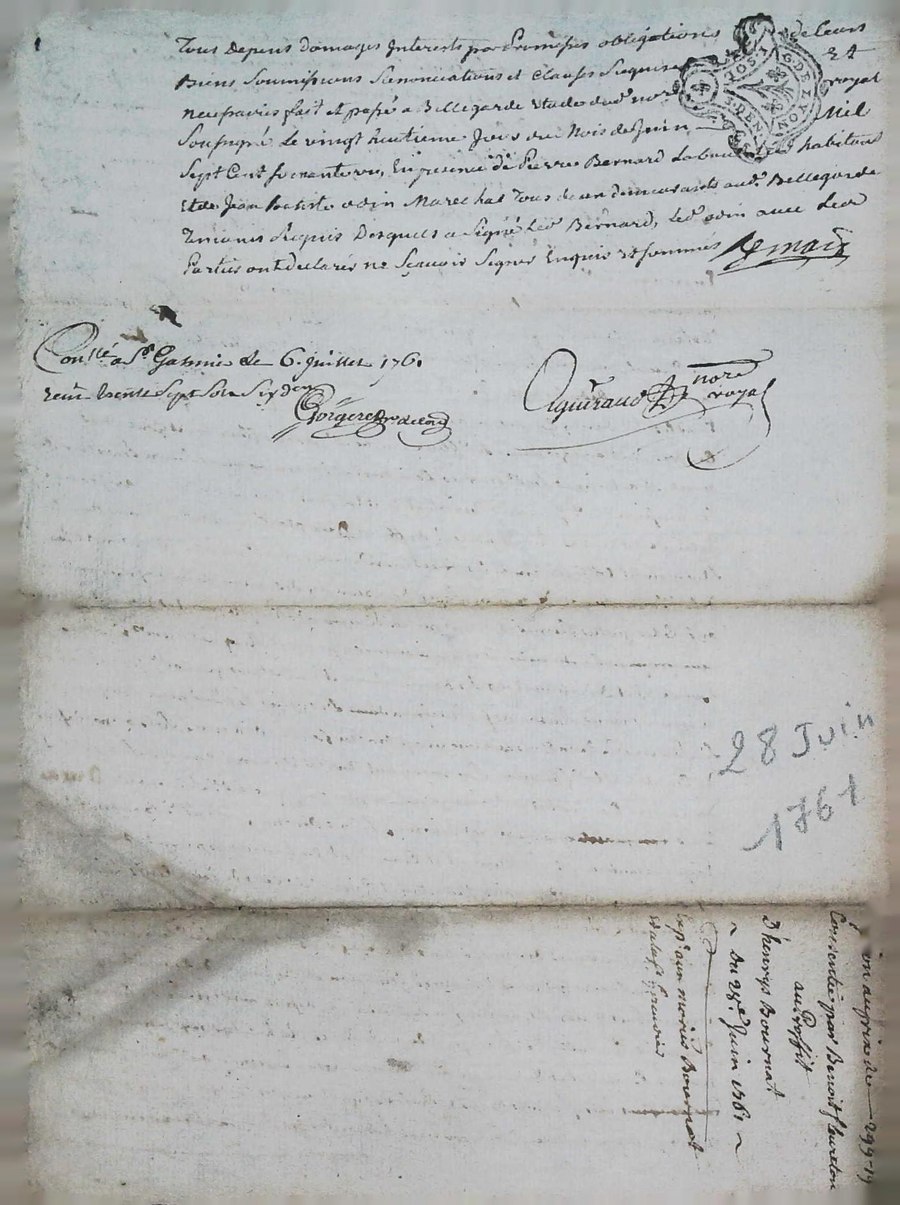 Tous depens domages Interests par Promesses obligations de Leurs
Biens Soumissions Renonciations et Clauses Requises
24
necessaires fait et passé a Bellegarde Etude du d. nore royal
Soussigné Le vingt huitieme Jour du Mois de Juin Mil
Sept Cent soixante un, En presence de Pierre Bernard Laboureur habitant
et de Jean Baptiste odin Marechal Tous deux demeurants aud. Bellegarde
Temoins Requis Desquels a Signé Led. Bernard, Led. odin avec Les
Parties ont declarés ne Sçavoir Signer Enquis et sommés
G. DE
LYON
Conllé a St. Galmier Le 6. Juillet 1761
reçu trente Sept Sols Six den
Aguiraud nore
royal
28 Juin
1761
299-19
Consentie par Benoit fleureton
au Proffit
D'henrys Bournat
Du 28e Juin 1761
Expn. aux mariés Bournat